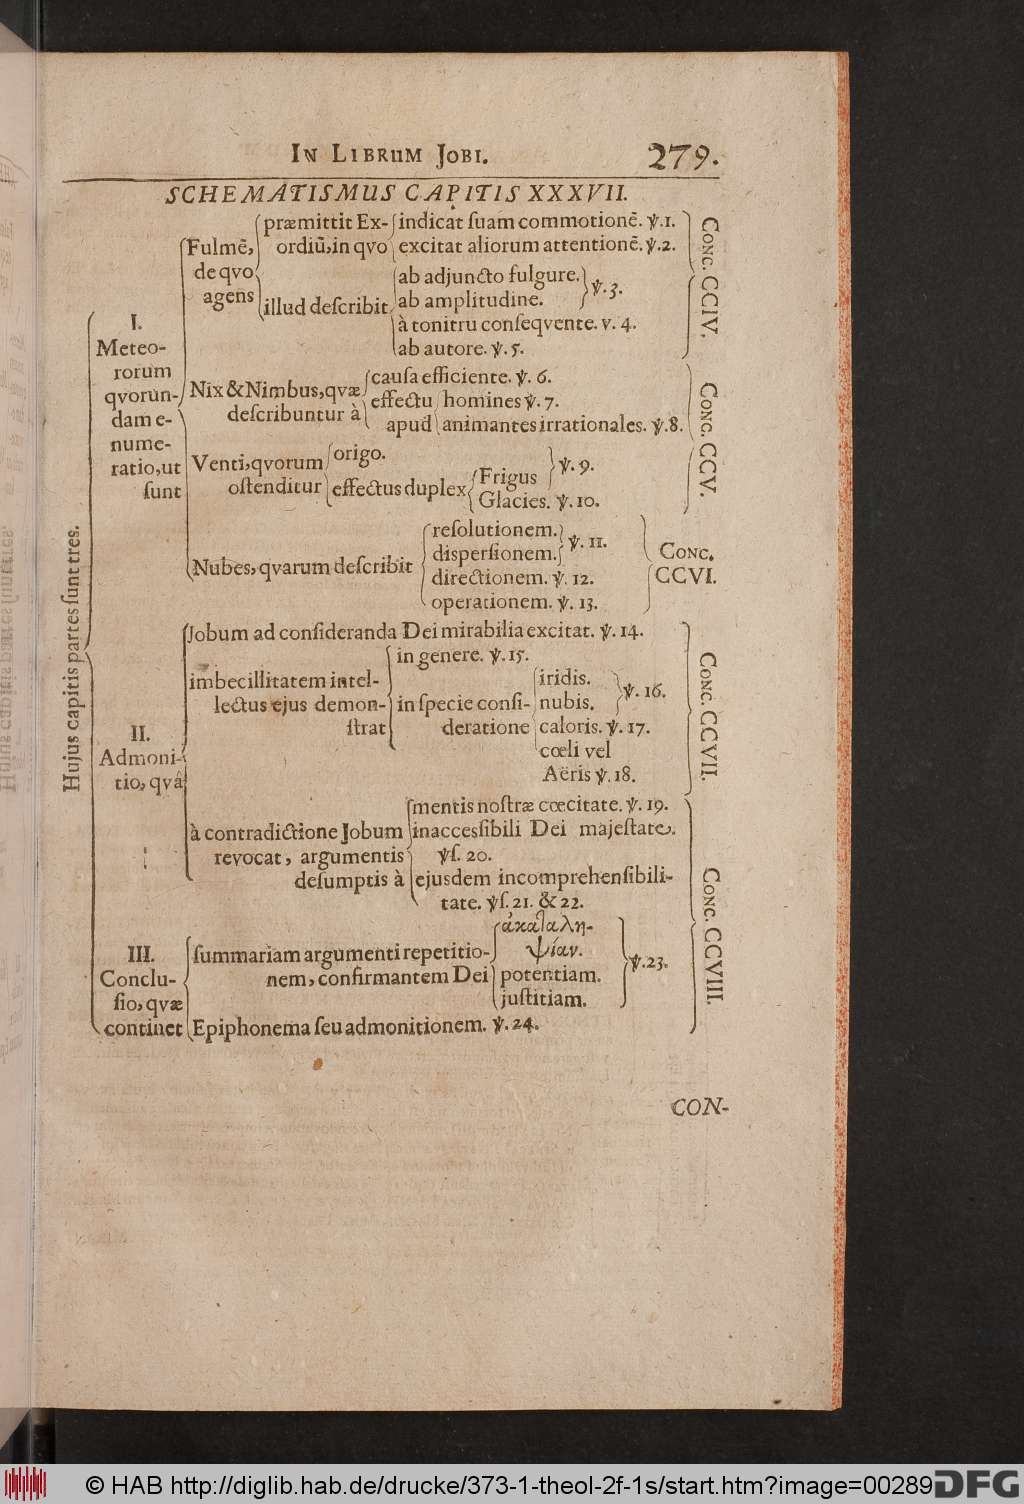 IN LIBRUM JOBI. 279.
SCHEMATISMUS CAPITIS XXXVII.
Hujus capitis partes ſunt tres.
I.
Meteo-
rorum
qvorun-
dam e-
nume-
ratio, ut
ſunt
Fulmẽ,
de qvo
agens
præmittit Ex-
ordiũ, in qvo
indicat ſuam commotionẽ. ℣.1.
excitat aliorum attentionẽ. ℣.2.
illud deſcribit
ab adjuncto fulgure.
ab amplitudine.
℣.3.
à tonitru conſeqvente. v. 4.
ab autore. ℣.5.
CONC. CCIV.
Nix & Nimbus, qvæ
deſcribuntur à
cauſa efficiente. ℣. 6.
effectu
apud
homines ℣. 7.
animantes irrationales. ℣.8.
Venti, qvorum
oſtenditur
origo.
effectus duplex
Frigus
℣. 9.
Glacies. ℣. 10.
CONC. CCV.
Nubes, qvarum deſcribit
reſolutionem.
diſperſionem.
℣. 11.
directionem. ℣. 12.
operationem. ℣. 13.
CONC.
CCVI.
II.
Admoni-
tio, qvâ
Jobum ad conſideranda Dei mirabilia excitat. ℣. 14.
imbecillitatem intel-
lectus ejus demon-
ſtrat
in genere. ℣.15.
in ſpecie conſi-
deratione
iridis.
nubis.
℣. 16.
caloris. ℣. 17.
cœli vel
Aëris ℣.18.
CONC. CCVII.
à contradictione Jobum
revocat, argumentis
deſumptis à
mentis noſtræ cœcitate. ℣. 19.
inacceſſibili Dei majeſtate.
℣ſ. 20.
ejusdem incomprehenſibili-
tate. ℣ſ. 21. & 22.
III.
Conclu-
ſio, qvæ
continet
ſummariam argumenti repetitio-
nem, confirmantem Dei
ἀκαταλη-
ψίαν.
potentiam.
juſtitiam.
℣.23.
Epiphonema ſeu admonitionem. ℣. 24.
CONC. CCVIII.
CON-
© HAB http://diglib.hab.de/drucke/373-1-theol-2f-1s/start.htm?image=00289
DFG